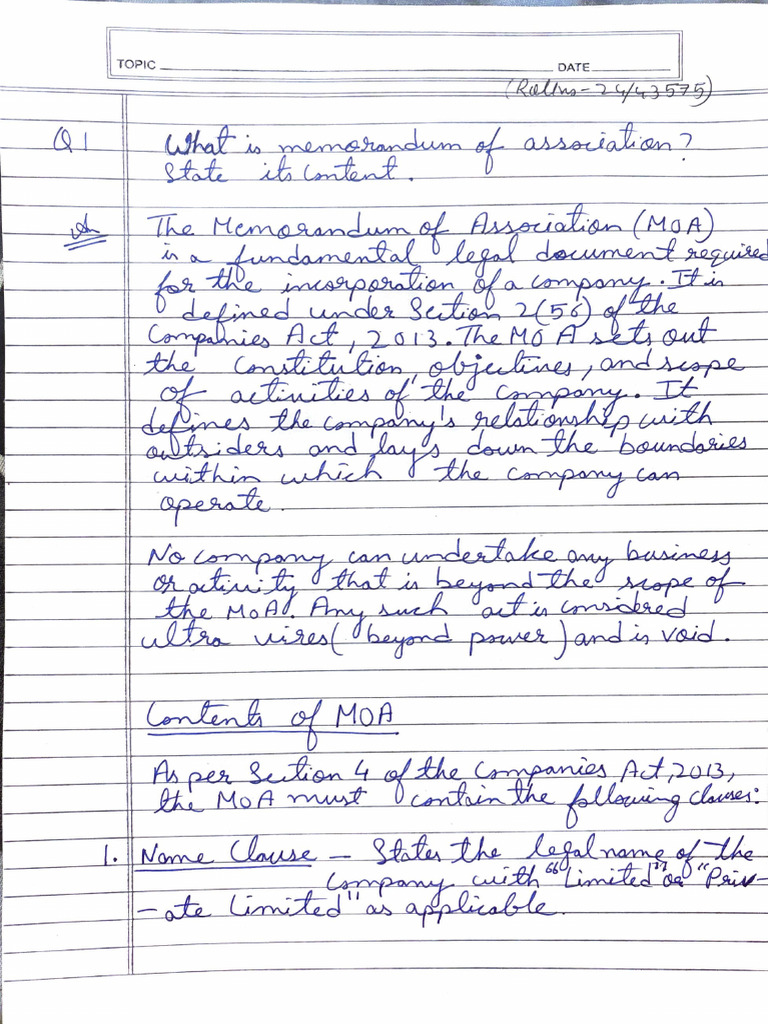 TOPIC DATE
(Rollno-24/43575)
Q1 What is memorandum of association?
State its content.
An The Memorandum of Association (MOA)
is a fundamental legal document required
for the incorporation of a company. It is
defined under Section 2(56) of the
Companies Act, 2013. The MOA sets out
the constitution, objectives, and scope
of activities of the company. It
defines the company's relationship with
outsiders and lays down the boundaries
within which the company can
operate.
No company can undertake any business
or activity that is beyond the scope of
the MOA. Any such act is considered
ultra vires (beyond power) and is void.
Contents of MOA
As per Section 4 of the Companies Act, 2013,
the MOA must contain the following clauses:
1. Name Clause – States the legal name of the
company with "Limited" or "Priv-
-ate Limited" as applicable.